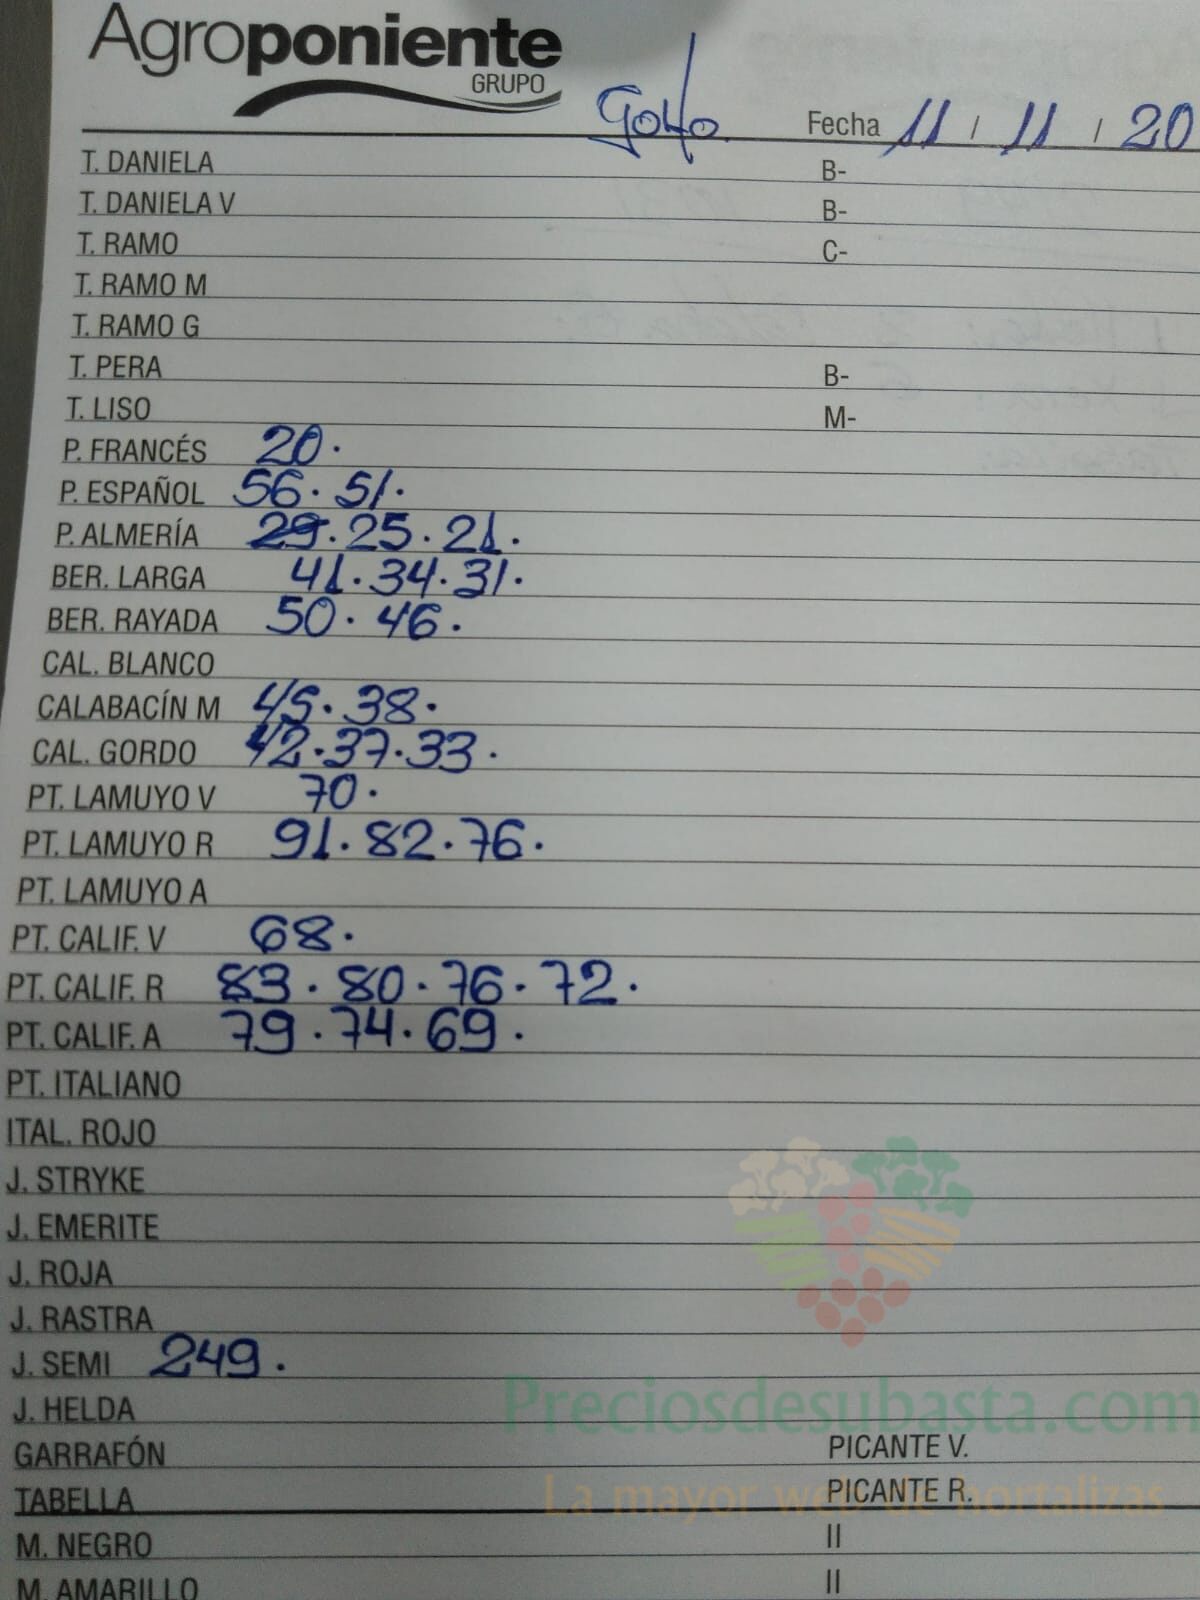 Agroponiente
GRUPO
Goyo. Fecha 11 / 11 / 20
T. DANIELA B-
T. DANIELA V B-
T. RAMO C-
T. RAMO M
T. RAMO G
T. PERA B-
T. LISO M-
P. FRANCÉS 20.
P. ESPAÑOL 56. 51.
P. ALMERÍA 29. 25. 21.
BER. LARGA 41. 34. 31.
BER. RAYADA 50. 46.
CAL. BLANCO
CALABACÍN M 45. 38.
CAL. GORDO 42. 37. 33.
PT. LAMUYO V 70.
PT. LAMUYO R 91. 82. 76.
PT. LAMUYO A
PT. CALIF. V 68.
PT. CALIF. R 83. 80. 76. 72.
PT. CALIF. A 79. 74. 69.
PT. ITALIANO
ITAL. ROJO
J. STRYKE
J. EMERITE
J. ROJA
J. RASTRA
J. SEMI 249.
J. HELDA
Preciosdesubasta.com
GARRAFÓN PICANTE V.
TABELLA PICANTE R.
La mayor web de hortalizas
M. NEGRO II
M. AMARILLO II